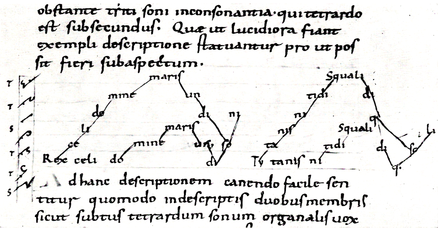 obstante triti soni inconsonantia. qui tetrardo
est subsecundus. Quæ ut lucidiora fiant
exempli descriptione statuantur pro ut pos
sit fieri subaspectum.
maris Squali
mine un tidi di
do di ni ta
li maris nis Squali
ce mine un so ni di so li
Rex celi do di Ty tanis ni tidi
Ad hanc descriptionem canendo facile sen
titur quomodo indescriptis duobus membris
sicut subtus tetrardum sonum organalis vox